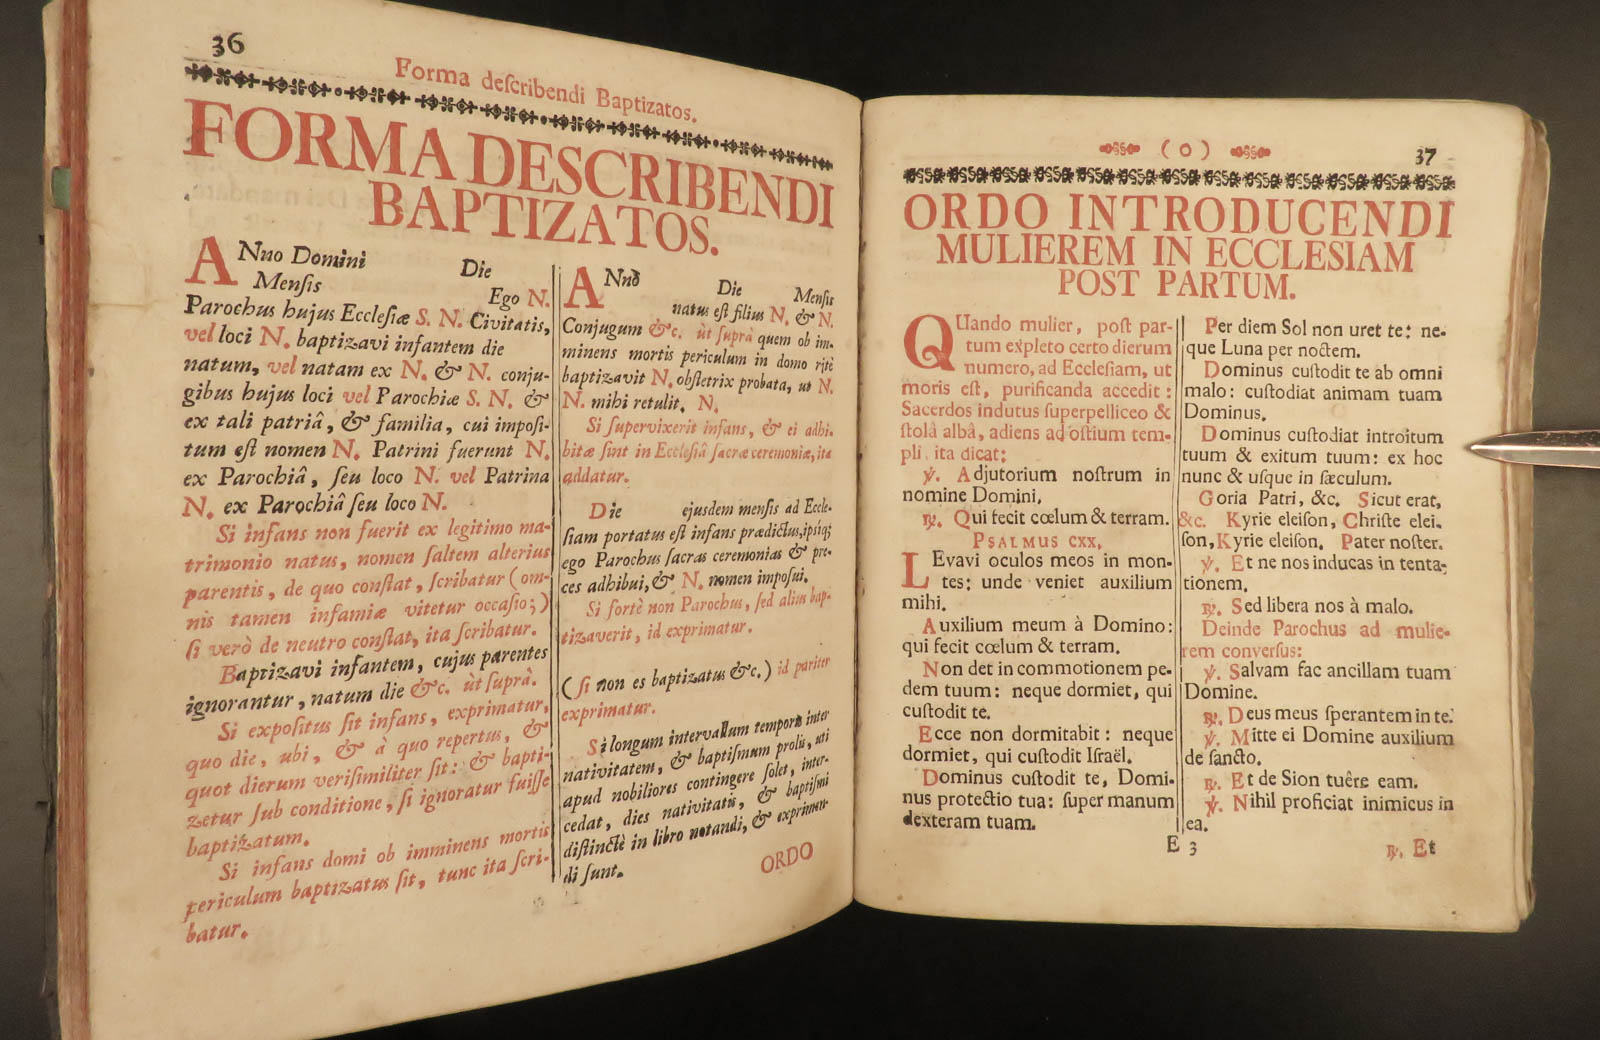 36
Forma deſcribendi Baptizatos.
FORMA DESCRIBENDI
BAPTIZATOS.
ANno Domini Die
Menſis Ego N.
Parochus hujus Eccleſiæ S. N. Civitatis,
vel loci N. baptizavi infantem die
natum, vel natam ex N. & N. conju-
gibus hujus loci vel Parochiæ S. N. &
ex tali patriâ, & familia, cui impoſi-
tum eſt nomen N. Patrini fuerunt N.
ex Parochiâ, ſeu loco N. vel Patrina
N. ex Parochiâ ſeu loco N.
Si infans non fuerit ex legitimo ma-
trimonio natus, nomen ſaltem alterius
parentis, de quo conſtat, ſcribatur (om-
nis tamen infamiæ vitetur occaſio;)
ſi verò de neutro conſtat, ita ſcribatur.
Baptizavi infantem, cujus parentes
ignorantur, natum die &c. ùt ſuprà.
Si expoſitus ſit infans, exprimatur,
quo die, ubi, & à quo repertus, &
quot dierum veriſimiliter ſit: & bapti-
zetur ſub conditione, ſi ignoratur fuiſſe
baptizatum.
Si infans domi ob imminens mortis
periculum baptizatus ſit, tunc ita ſcri-
batur.
ANnō Die Menſis
natus eſt filius N. & N.
Conjugum &c. ùt ſuprà quem ob im-
minens mortis periculum in domo ritè
baptizavit N. obſtetrix probata, ut N.
N. mihi retulit. N.
Si ſupervixerit infans, & ei adhi-
bitæ ſint in Eccleſiâ ſacræ ceremoniæ, ita
addatur.
Die ejusdem menſis ad Eccle-
ſiam portatus eſt infans prædictus, ipſiq;
ego Parochus ſacras ceremonias & pre-
ces adhibui, & N. nomen impoſui.
Si fortè non Parochus, ſed alius bap-
tizaverit, id exprimatur.
(ſi non es baptizatus &c.) id pariter
exprimatur.
Si longum intervallum temporis inter
nativitatem, & baptiſmum prolis, uti
apud nobiliores contingere ſolet, inter-
cedat, dies nativitatis, & baptiſmi
diſtinctè in libro notandi, & exprimen-
di ſunt.
ORDO
( 0 ) 37
ORDO INTRODUCENDI
MULIEREM IN ECCLESIAM
POST PARTUM.
QUando mulier, poſt par-
tum expleto certo dierum
numero, ad Eccleſiam, ut
moris eſt, purificanda accedit:
Sacerdos indutus ſuperpelliceo &
ſtolâ albâ, adiens ad oſtium tem-
pli, ita dicat:
℣. Adjutorium noſtrum in
nomine Domini,
℟. Qui fecit cœlum & terram.
PSALMUS CXX,
LEvavi oculos meos in mon-
tes: unde veniet auxilium
mihi.
Auxilium meum à Domino:
qui fecit cœlum & terram.
Non det in commotionem pe-
dem tuum: neque dormiet, qui
cuſtodit te.
Ecce non dormitabit: neque
dormiet, qui cuſtodit Iſraël.
Dominus cuſtodit te, Domi-
nus protectio tua: ſuper manum
dexteram tuam.
Per diem Sol non uret te: ne-
que Luna per noctem.
Dominus cuſtodit te ab omni
malo: cuſtodiat animam tuam
Dominus.
Dominus cuſtodiat introitum
tuum & exitum tuum: ex hoc
nunc & uſque in ſæculum.
Goria Patri, &c. Sicut erat,
&c. Kyrie eleiſon, Chriſte elei.
ſon, Kyrie eleiſon. Pater noſter.
℣. Et ne nos inducas in tenta-
tionem.
℟. Sed libera nos à malo.
Deinde Parochus ad mulie-
rem converſus:
℣. Salvam fac ancillam tuam
Domine.
℟. Deus meus ſperantem in te.
℣. Mitte ei Domine auxilium
de ſancto.
℟. Et de Sion tuêre eam.
℣. Nihil proficiat inimicus in
ea.
E 3
℟. Et